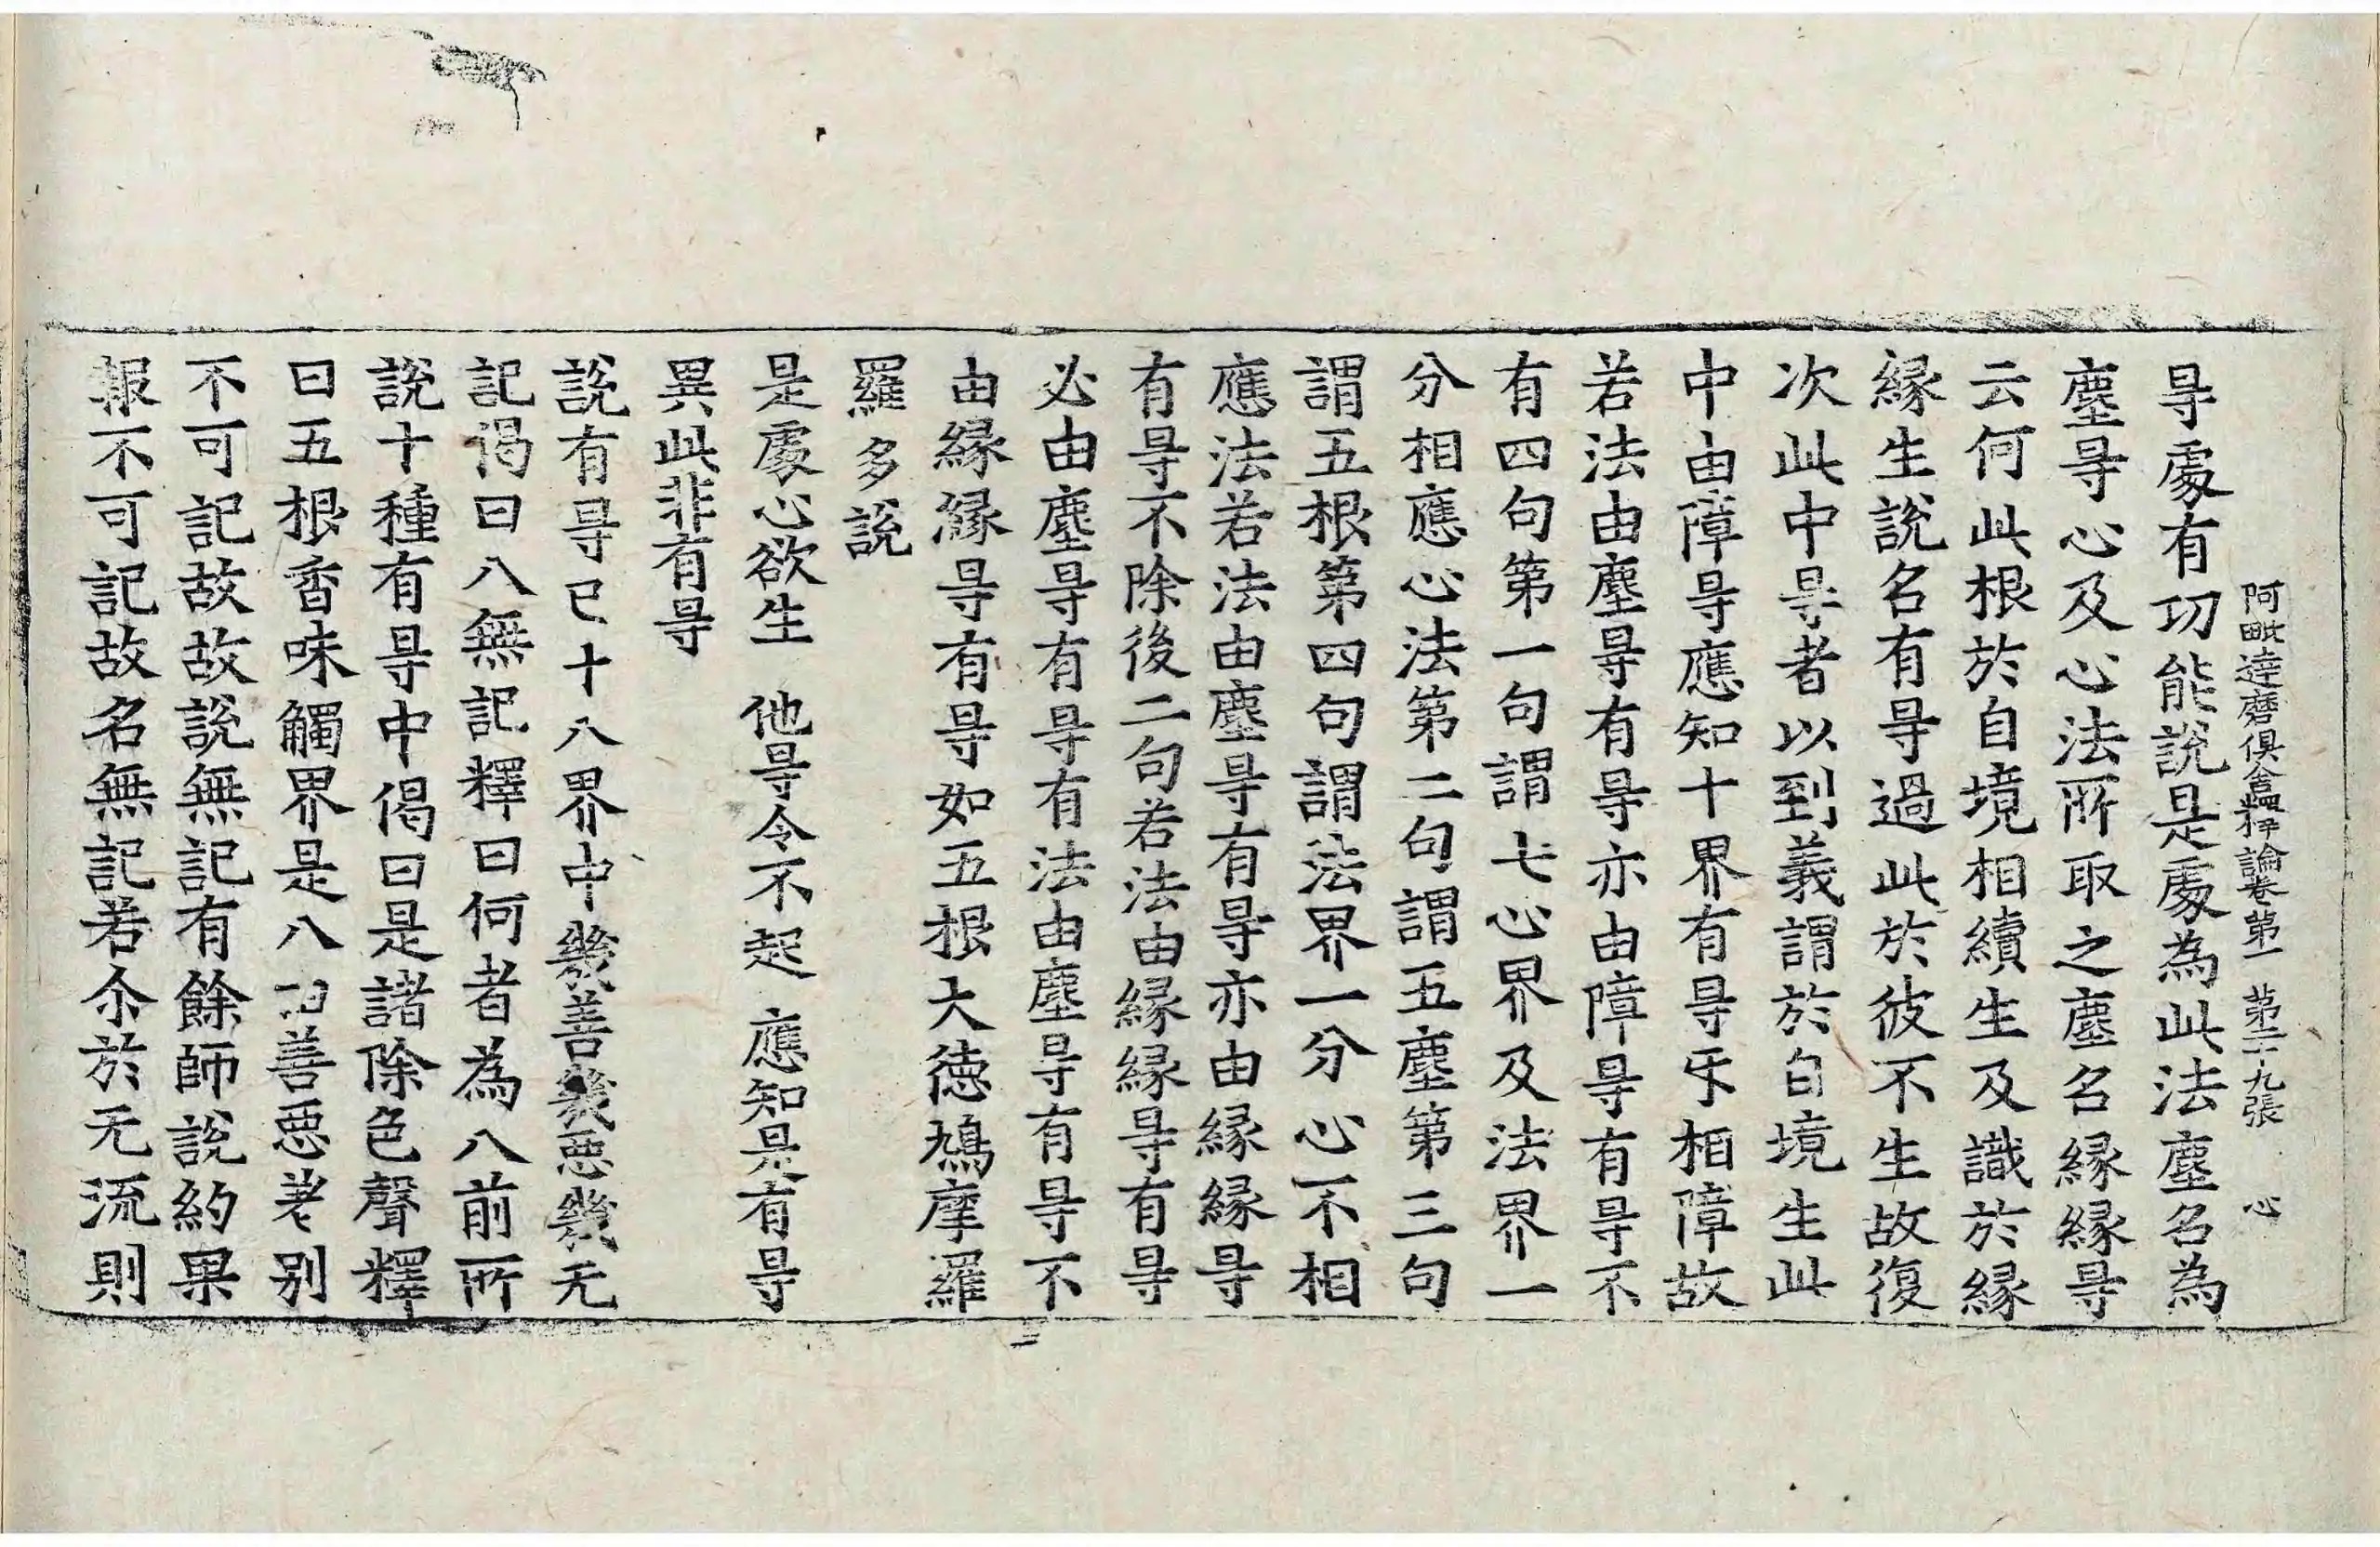 阿毗達磨俱舍釋論卷第一 第二十九張 心
㝵處有功能說是處為此法塵名為
塵㝵心及心法所取之塵名緣緣㝵
云何此根於自境相續生及識於緣
緣生說名有㝵過此於彼不生故復
次此中㝵者以到義謂於自境生此
中由障㝵應知十界有㝵㸦相障故
若法由塵㝵有㝵亦由障㝵有㝵不
有四句第一句謂七心界及法界一
分相應心法第二句謂五塵第三句
謂五根第四句謂法界一分心不相
應法若法由塵㝵有㝵亦由緣緣㝵
有㝵不除後二句若法由緣緣㝵有㝵
必由塵㝵有㝵有法由塵㝵有㝵不
由緣緣㝵有㝵如五根大德鳩摩羅
羅多說
是處心欲生 他㝵令不起 應知是有㝵
異此非有㝵
說有㝵已十八界中幾善幾惡幾无
記偈曰八無記釋曰何者為八前所
說十種有㝵中偈曰是諸除色聲釋
曰五根香味觸界是八由善惡差别
不可記故故說無記有餘師說約果
報不可記故名無記若尒於无流則